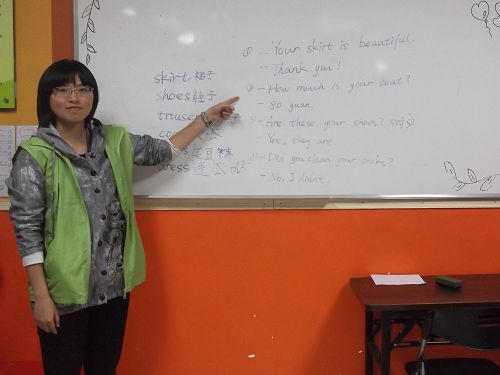 skirt 裙子
shoes 鞋子
trouser 子
socks 短袜
dress 连衣裙
① - Your skirt is beautiful.
- Thank you!
② - How much is your coat?
- 80 yuan.
- Are these your shoes?
- Yes, they are.
- Did you clean your socks?
- No, I didn't.